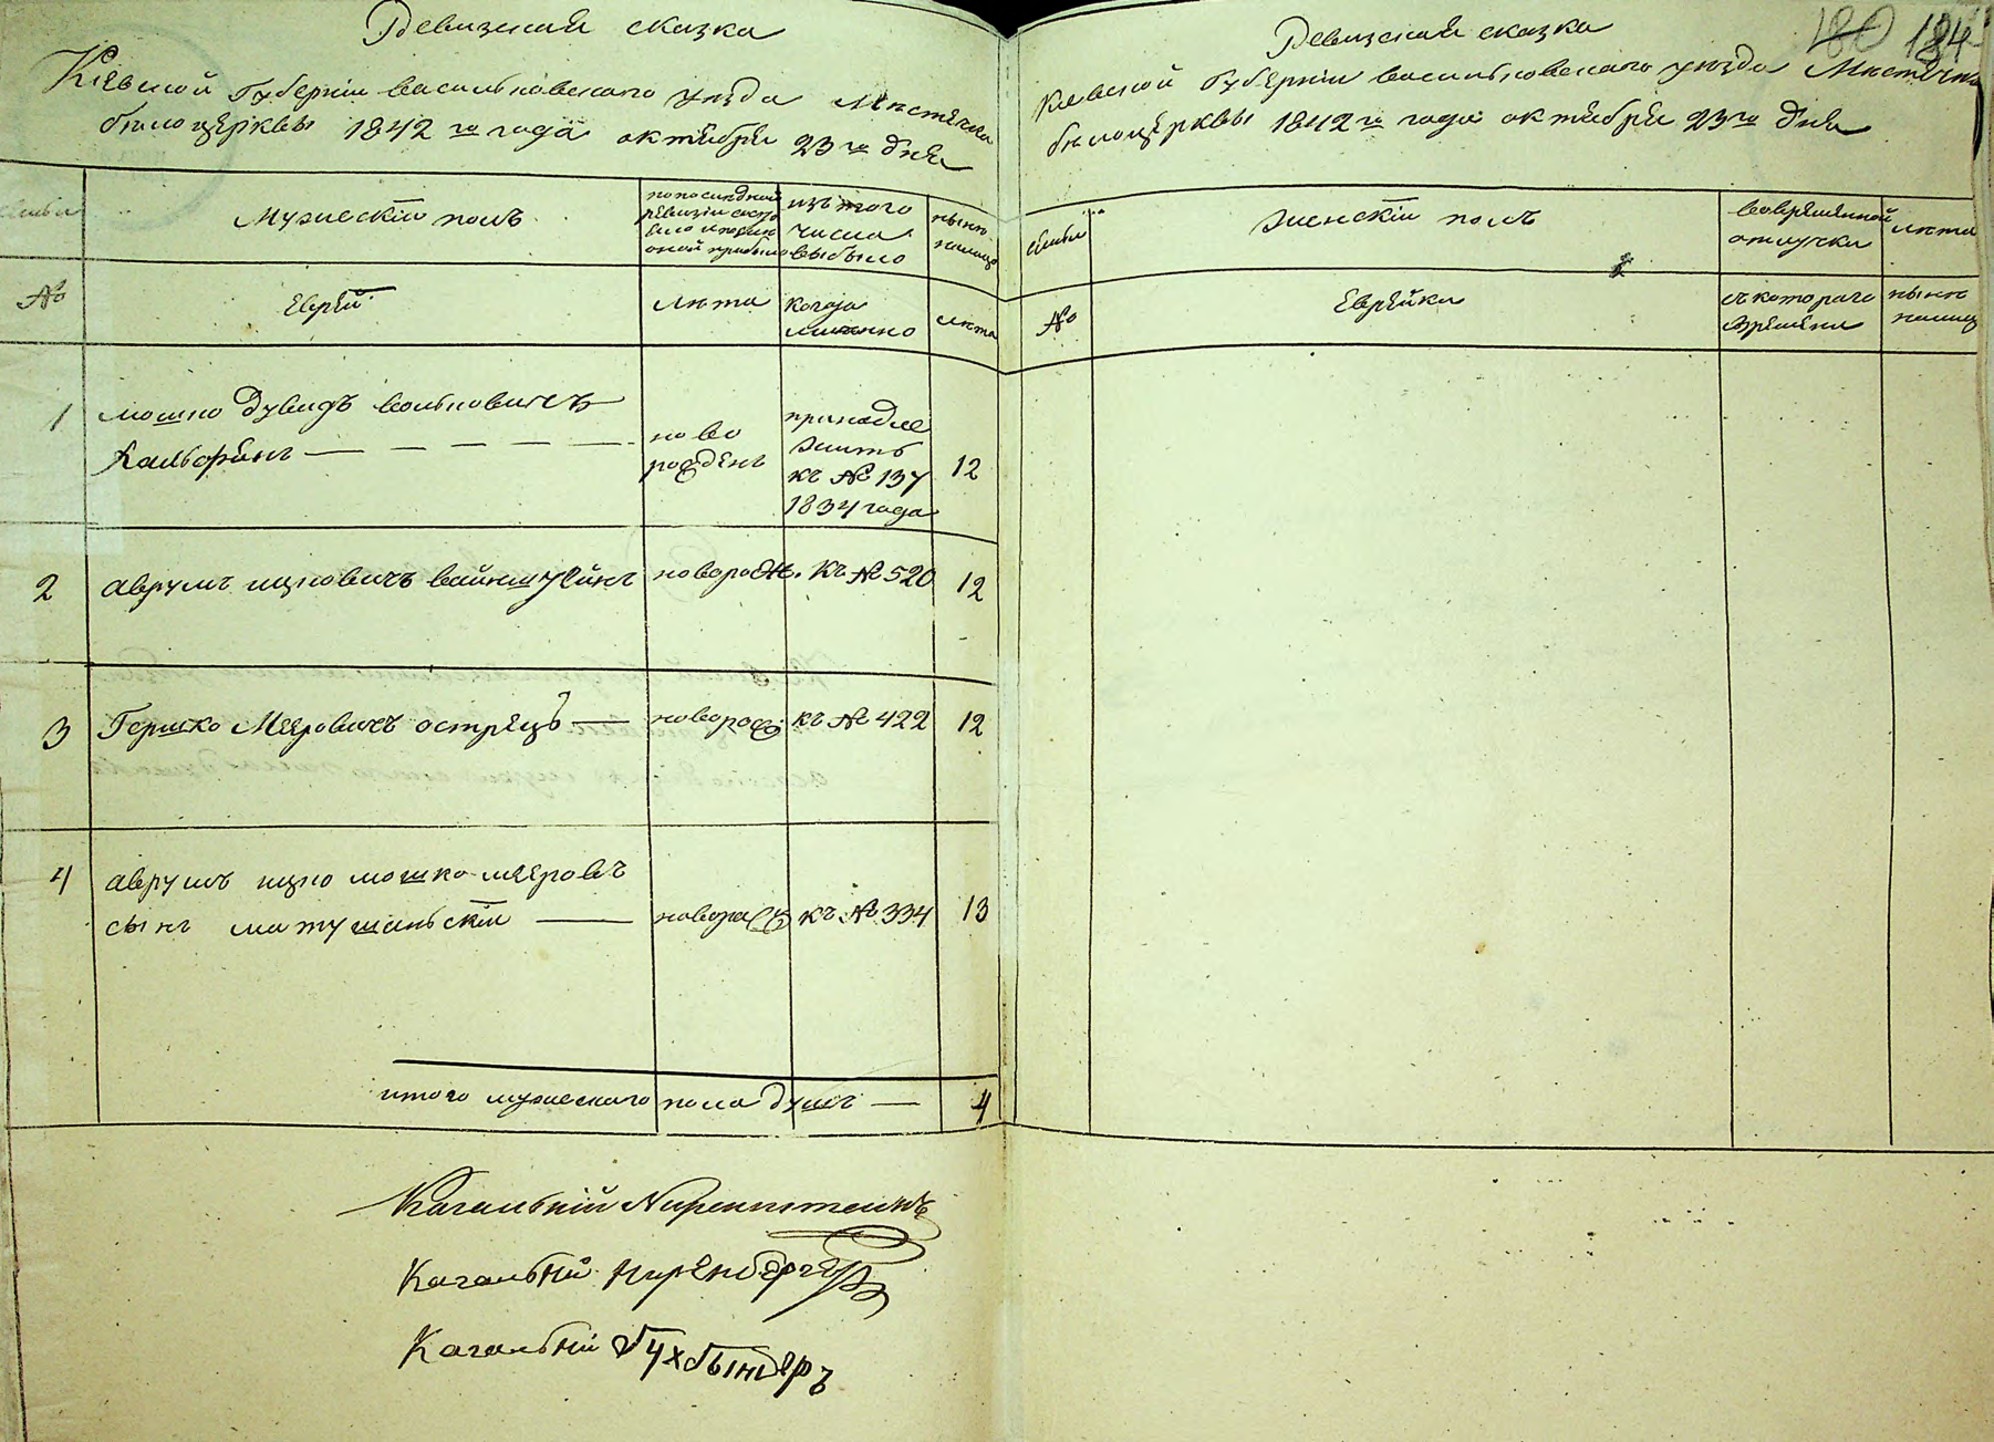 Ревизская сказка
Кіевской Губерніи васильковскаго уезда Местечка
белоцерквы 1842 го года октебря 23 го дня
Мужескій полъ
по последней
ревизіи состо
яло и после
оной прибыло
изъ того
числа
выбыло
ныне
налицо
№
Еврей
лета
когда
именно
лета
1
мошко дувидъ вольковичъ
ново
рожденъ
принадле
житъ
къ № 137
1834 года
12
2
аврумъ ицковичъ вайнштейнъ
новорож.
къ № 520
12
3
Гершко Мееровичъ острецъ
новорож
къ № 422
12
4
аврумъ ицко мошко мееровъ
сынъ матушанскій
новорож
къ № 334
13
итого мужескаго пола душъ
4
Кагальній Кирнштеинъ
Кагальній
Кагальній Бухбиндеръ
180 184
Ревизская сказка
Киевской Губерніи васильковскаго уезда Местечка
белоцерквы 1842 го года октебря 23 го дня
семьи
Женскій полъ
во временной
отлучки
лета
№
Еврейки
съ котораго
времени
ныне
налицо